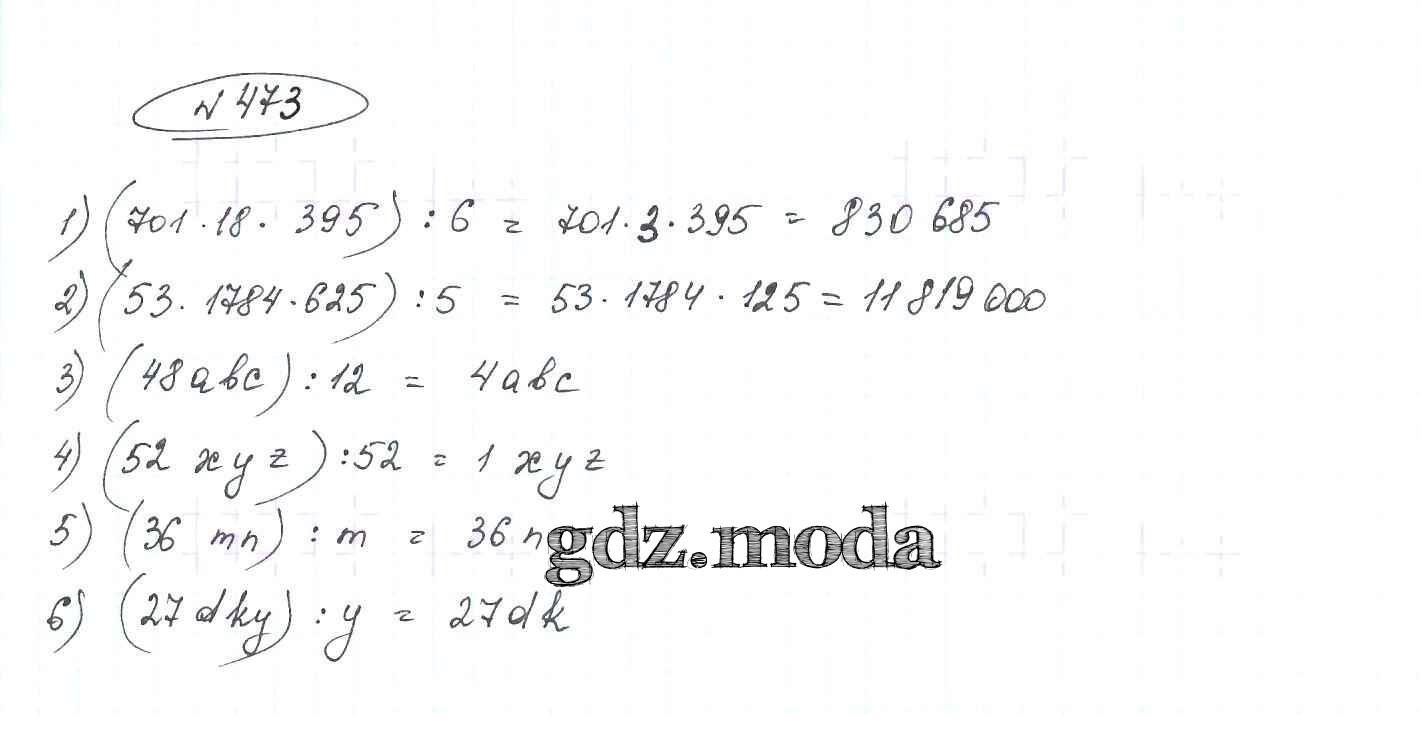 № 473
1) (701·18·395) : 6 = 701·3·395 = 830 685
2) (53·1784·625) : 5 = 53·1784·125 = 11 819 000
3) (48abc) : 12 = 4abc
4) (52 xyz) : 52 = 1 xyz
5) (36 mn) : m = 36 n
gdz.moda
6) (27dky) : y = 27dk